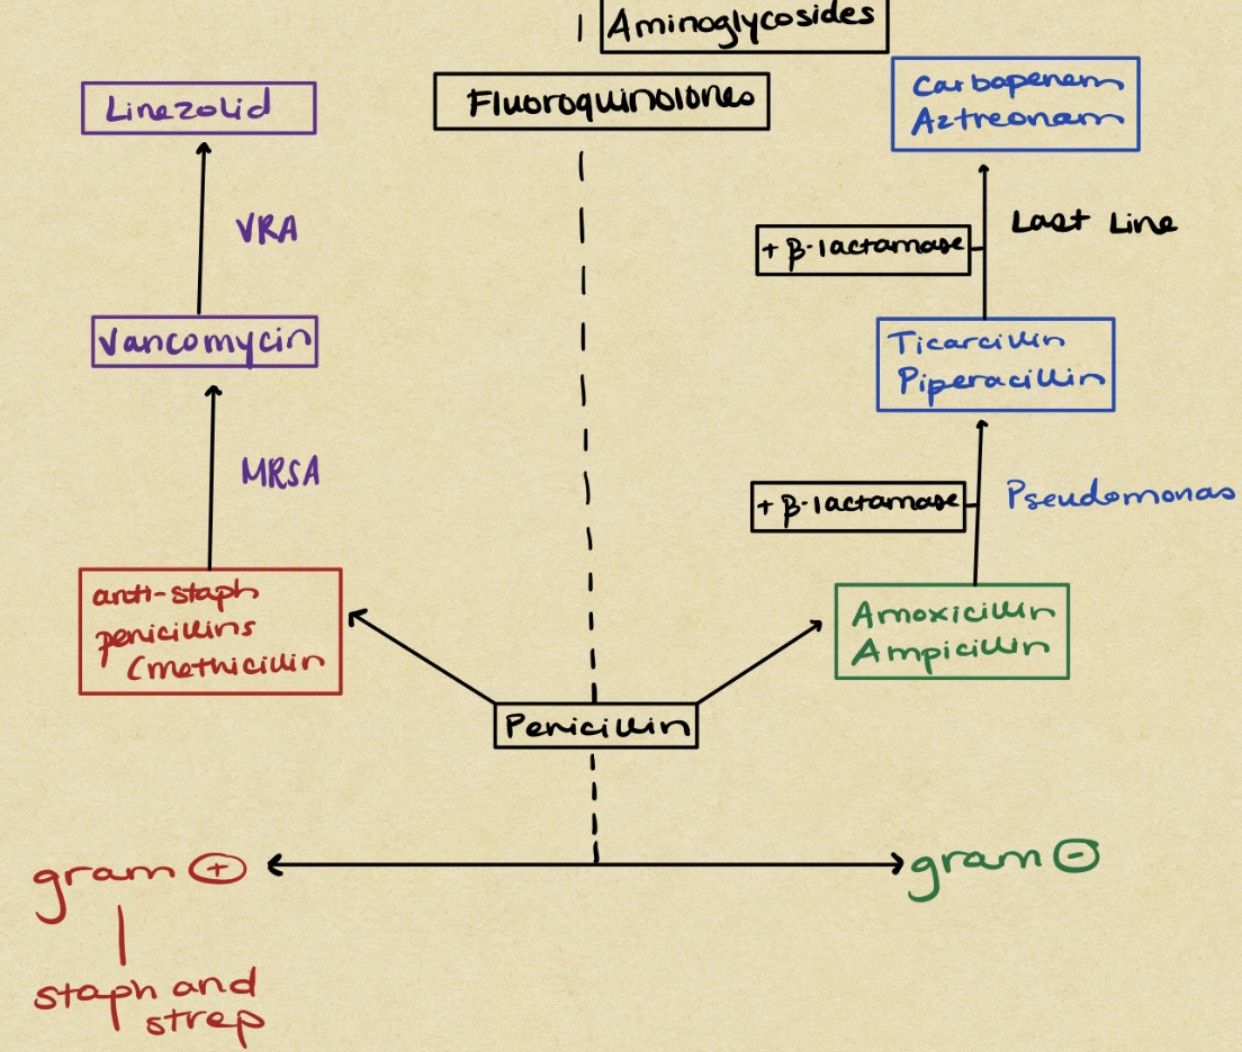 Aminoglycosides
Fluoroquinolones
Linezolid
Carbapenem
Aztreonam
VRA
+ β-lactamase
Last Line
Vancomycin
Ticarcillin
Piperacillin
MRSA
+ β-lactamase
Pseudomonas
anti-staph
penicillins
(methicillin
Amoxicillin
Ampicillin
Penicillin
gram +
gram -
staph and
strep